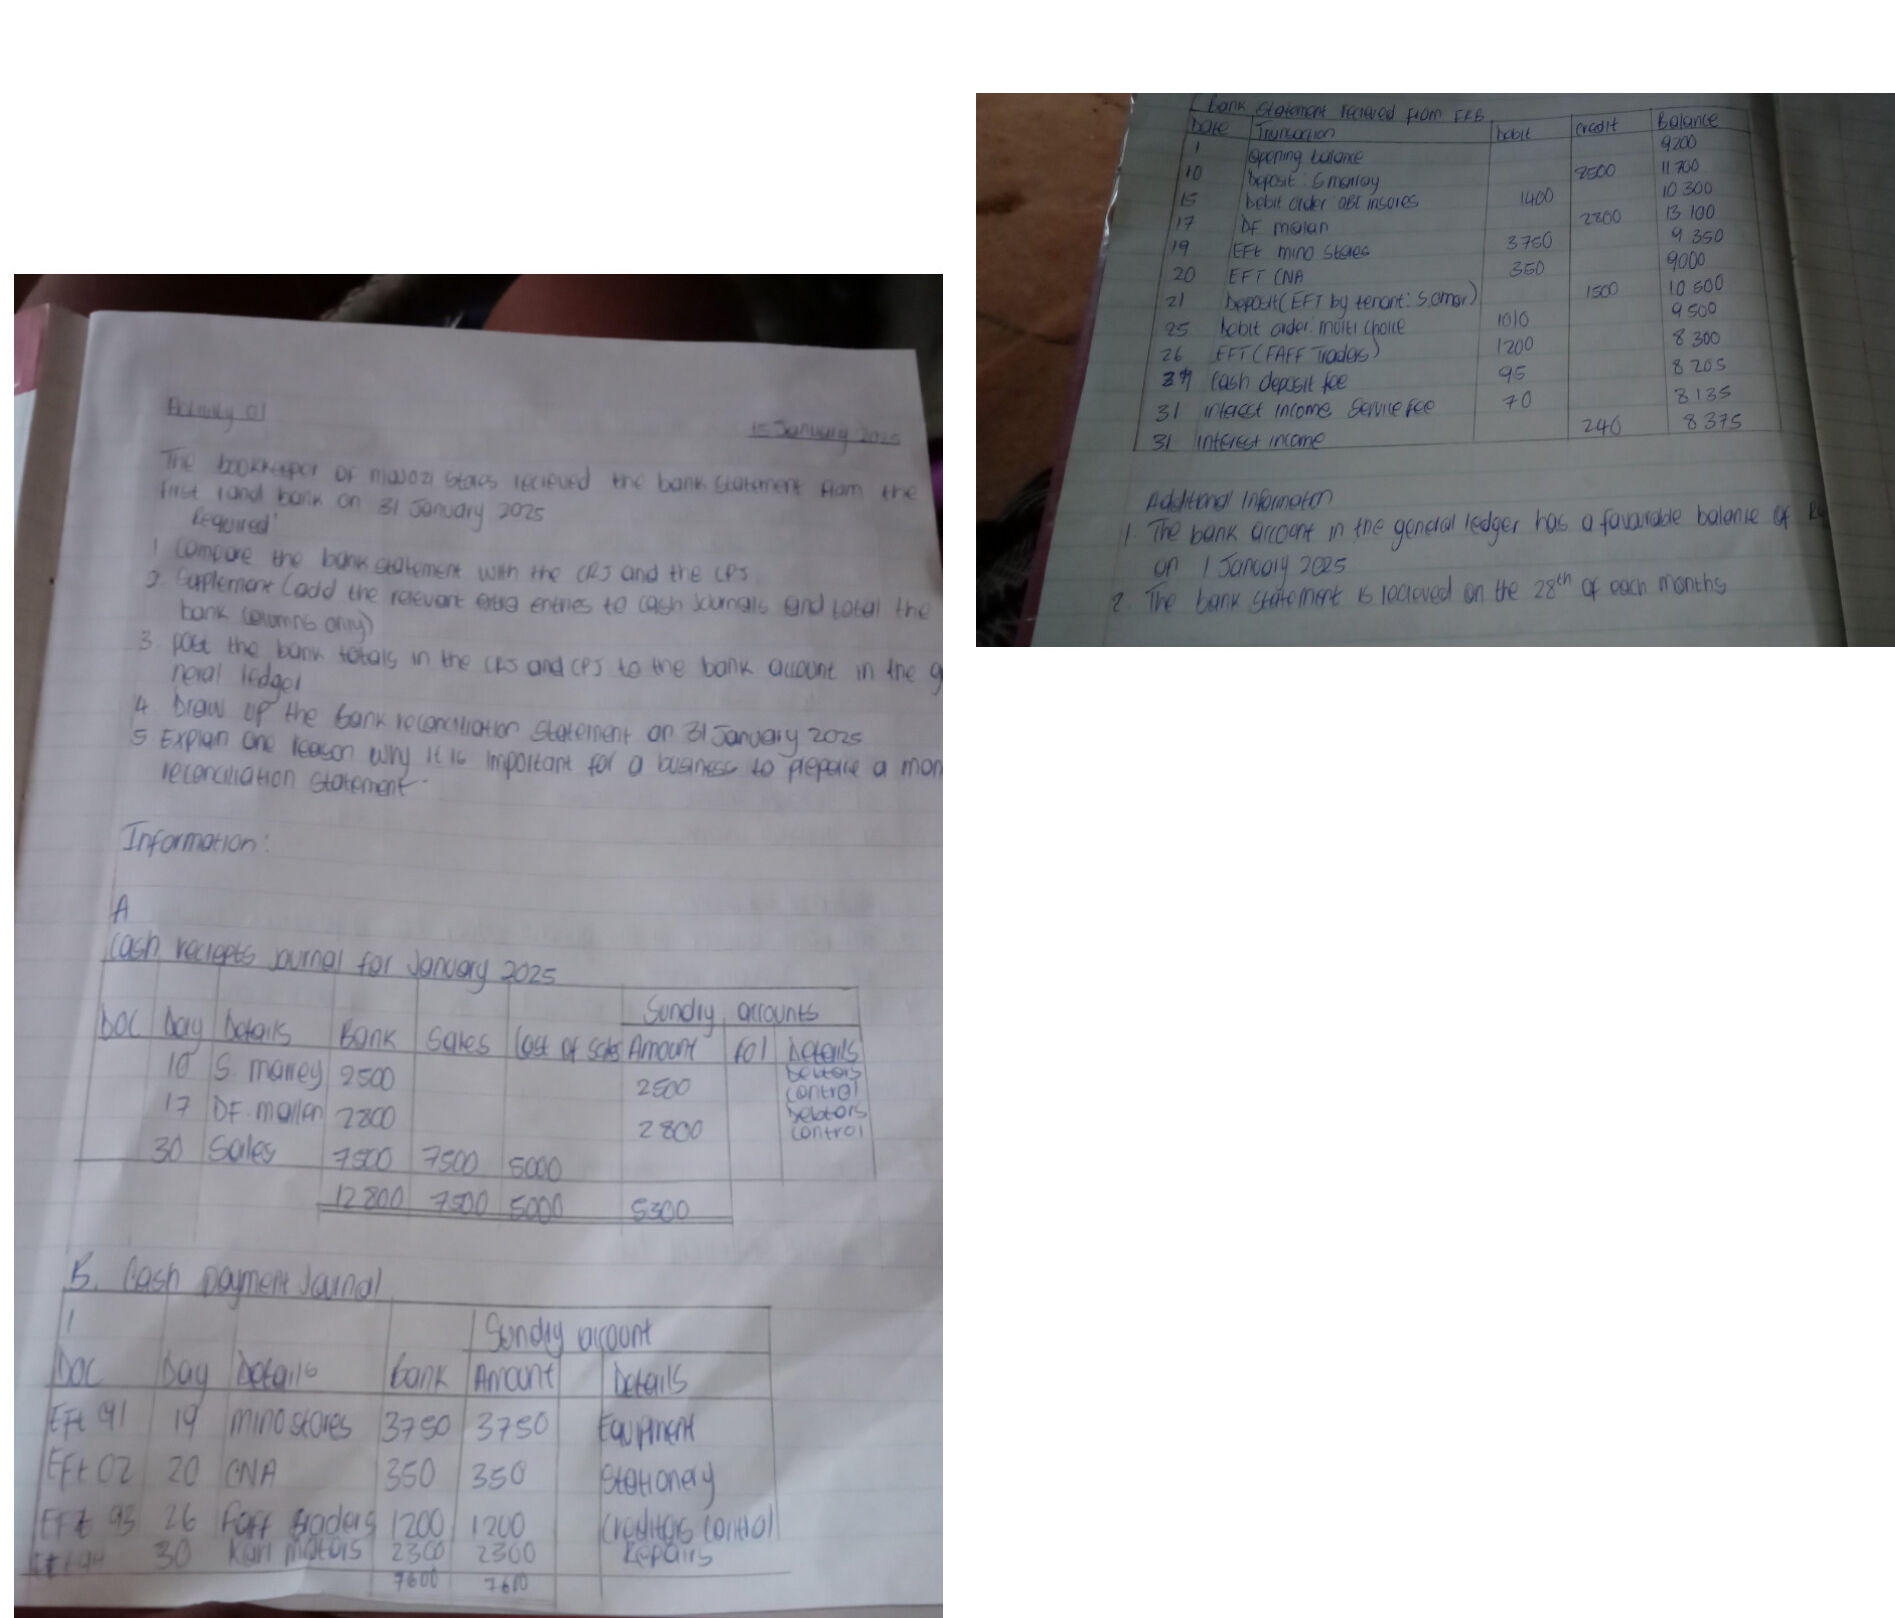 Activity 01
15 January 2025
The bookkeeper of mavozi stores recieved the bank statement from the
first rand bank on 31 January 2025
Required:
1 Compare the bank statement with the CRJ and the CPJ
2. Supplement (add the relevant extra entries to cash journals and total the
bank columns only)
3. post the bank totals in the CRJ and CPJ to the bank account in the g
neral ledger
4. Draw up the bank reconciliation statement on 31 January 2025
5 Explain one reason why it is important for a business to prepare a mon
reconciliation statement.
Information:
A
Cash reciepts journal for January 2025
Sundry accounts
Doc Day Details Bank Sales Cost of sales Amount fol Details
10 S. marrey 2500 2500 Debtors control
17 DF. mallan 2800 2800 Debtors control
30 Sales 7500 7500 5000
12800 7500 5000 5300
B. Cash payment Journal
1
Sundry account
Doc Day Details Bank Amount Details
Eft 91 19 mino stores 3750 3750 Equipment
Eft 02 20 CNA 350 350 Stationery
EFt 93 26 Faff traders 1200 1200 Creditors control
30 Karl motors 2300 2300 Repairs
7600 7600
C bank statement recieved from FRB
Date Transaction Debit Credit Balance
1 Opening balance 9200
10 Deposit: S marray 2500 11 700
15 Debit order ABI insores 1400 10 300
17 DF malan 2800 13 100
19 EFt mino stores 3750 9 350
20 EFT CNA 350 9000
21 Deposit (EFT by tenant: S. omar) 1500 10 500
25 Debit order: multi choice 1010 9 500
26 EFT (FAFF Traders) 1200 8 300
Cash deposit fee 95 8 205
31 interest income Service fee 70 8 135
31 interest income 240 8 375
Additional Information
1. The bank account in the general ledger has a favourable balance of
on 1 January 2025
2. The bank statement is recieved on the 28th of each months